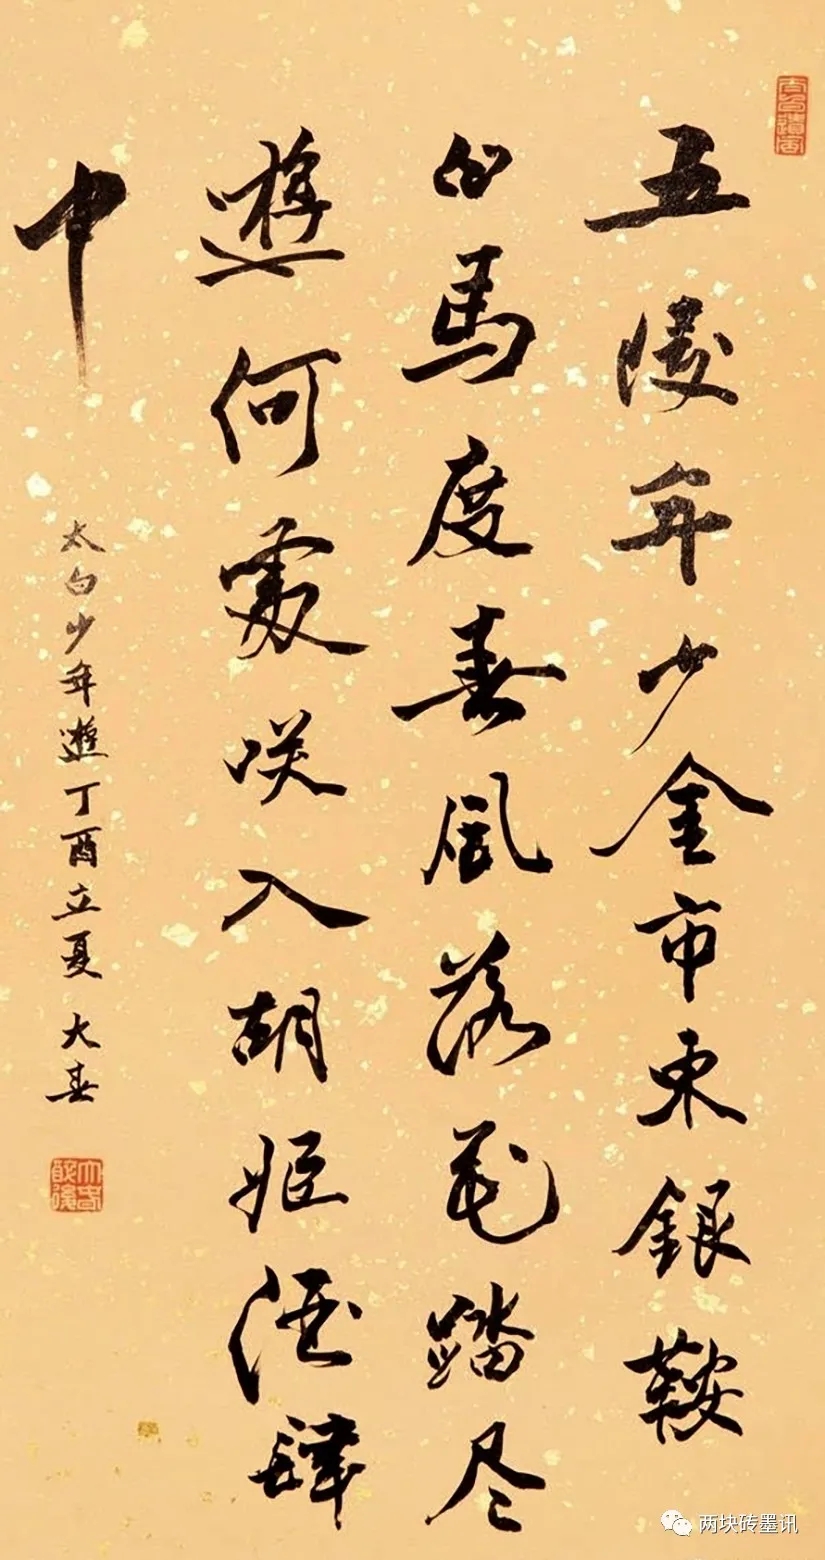 五陵年少金市東銀鞍
白馬度春風落花踏尽
遊何處咲入胡姬酒肆
中
太白少年遊丁酉立夏大春
两块砖墨讯